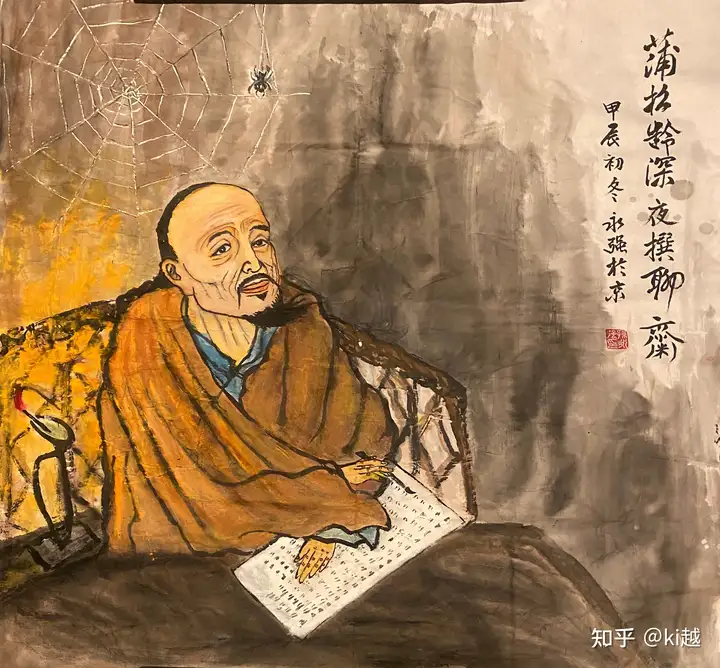 蒲松龄深夜撰聊齋
甲辰初冬永强於京
知乎 @ki越